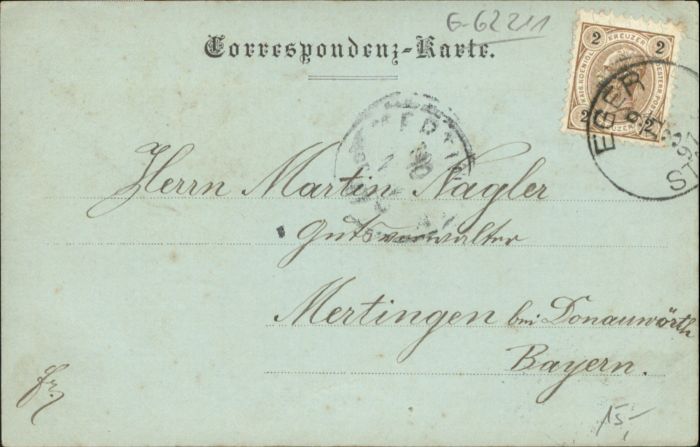 G-62211
Correspondenz-Karte.
2 KREUZER 2
2 2
EGER
MERTIN
Herrn Martin Nagler
Gutsverwalter
Mertingen bei Donauwörth
Bayern.
fr.
15,-